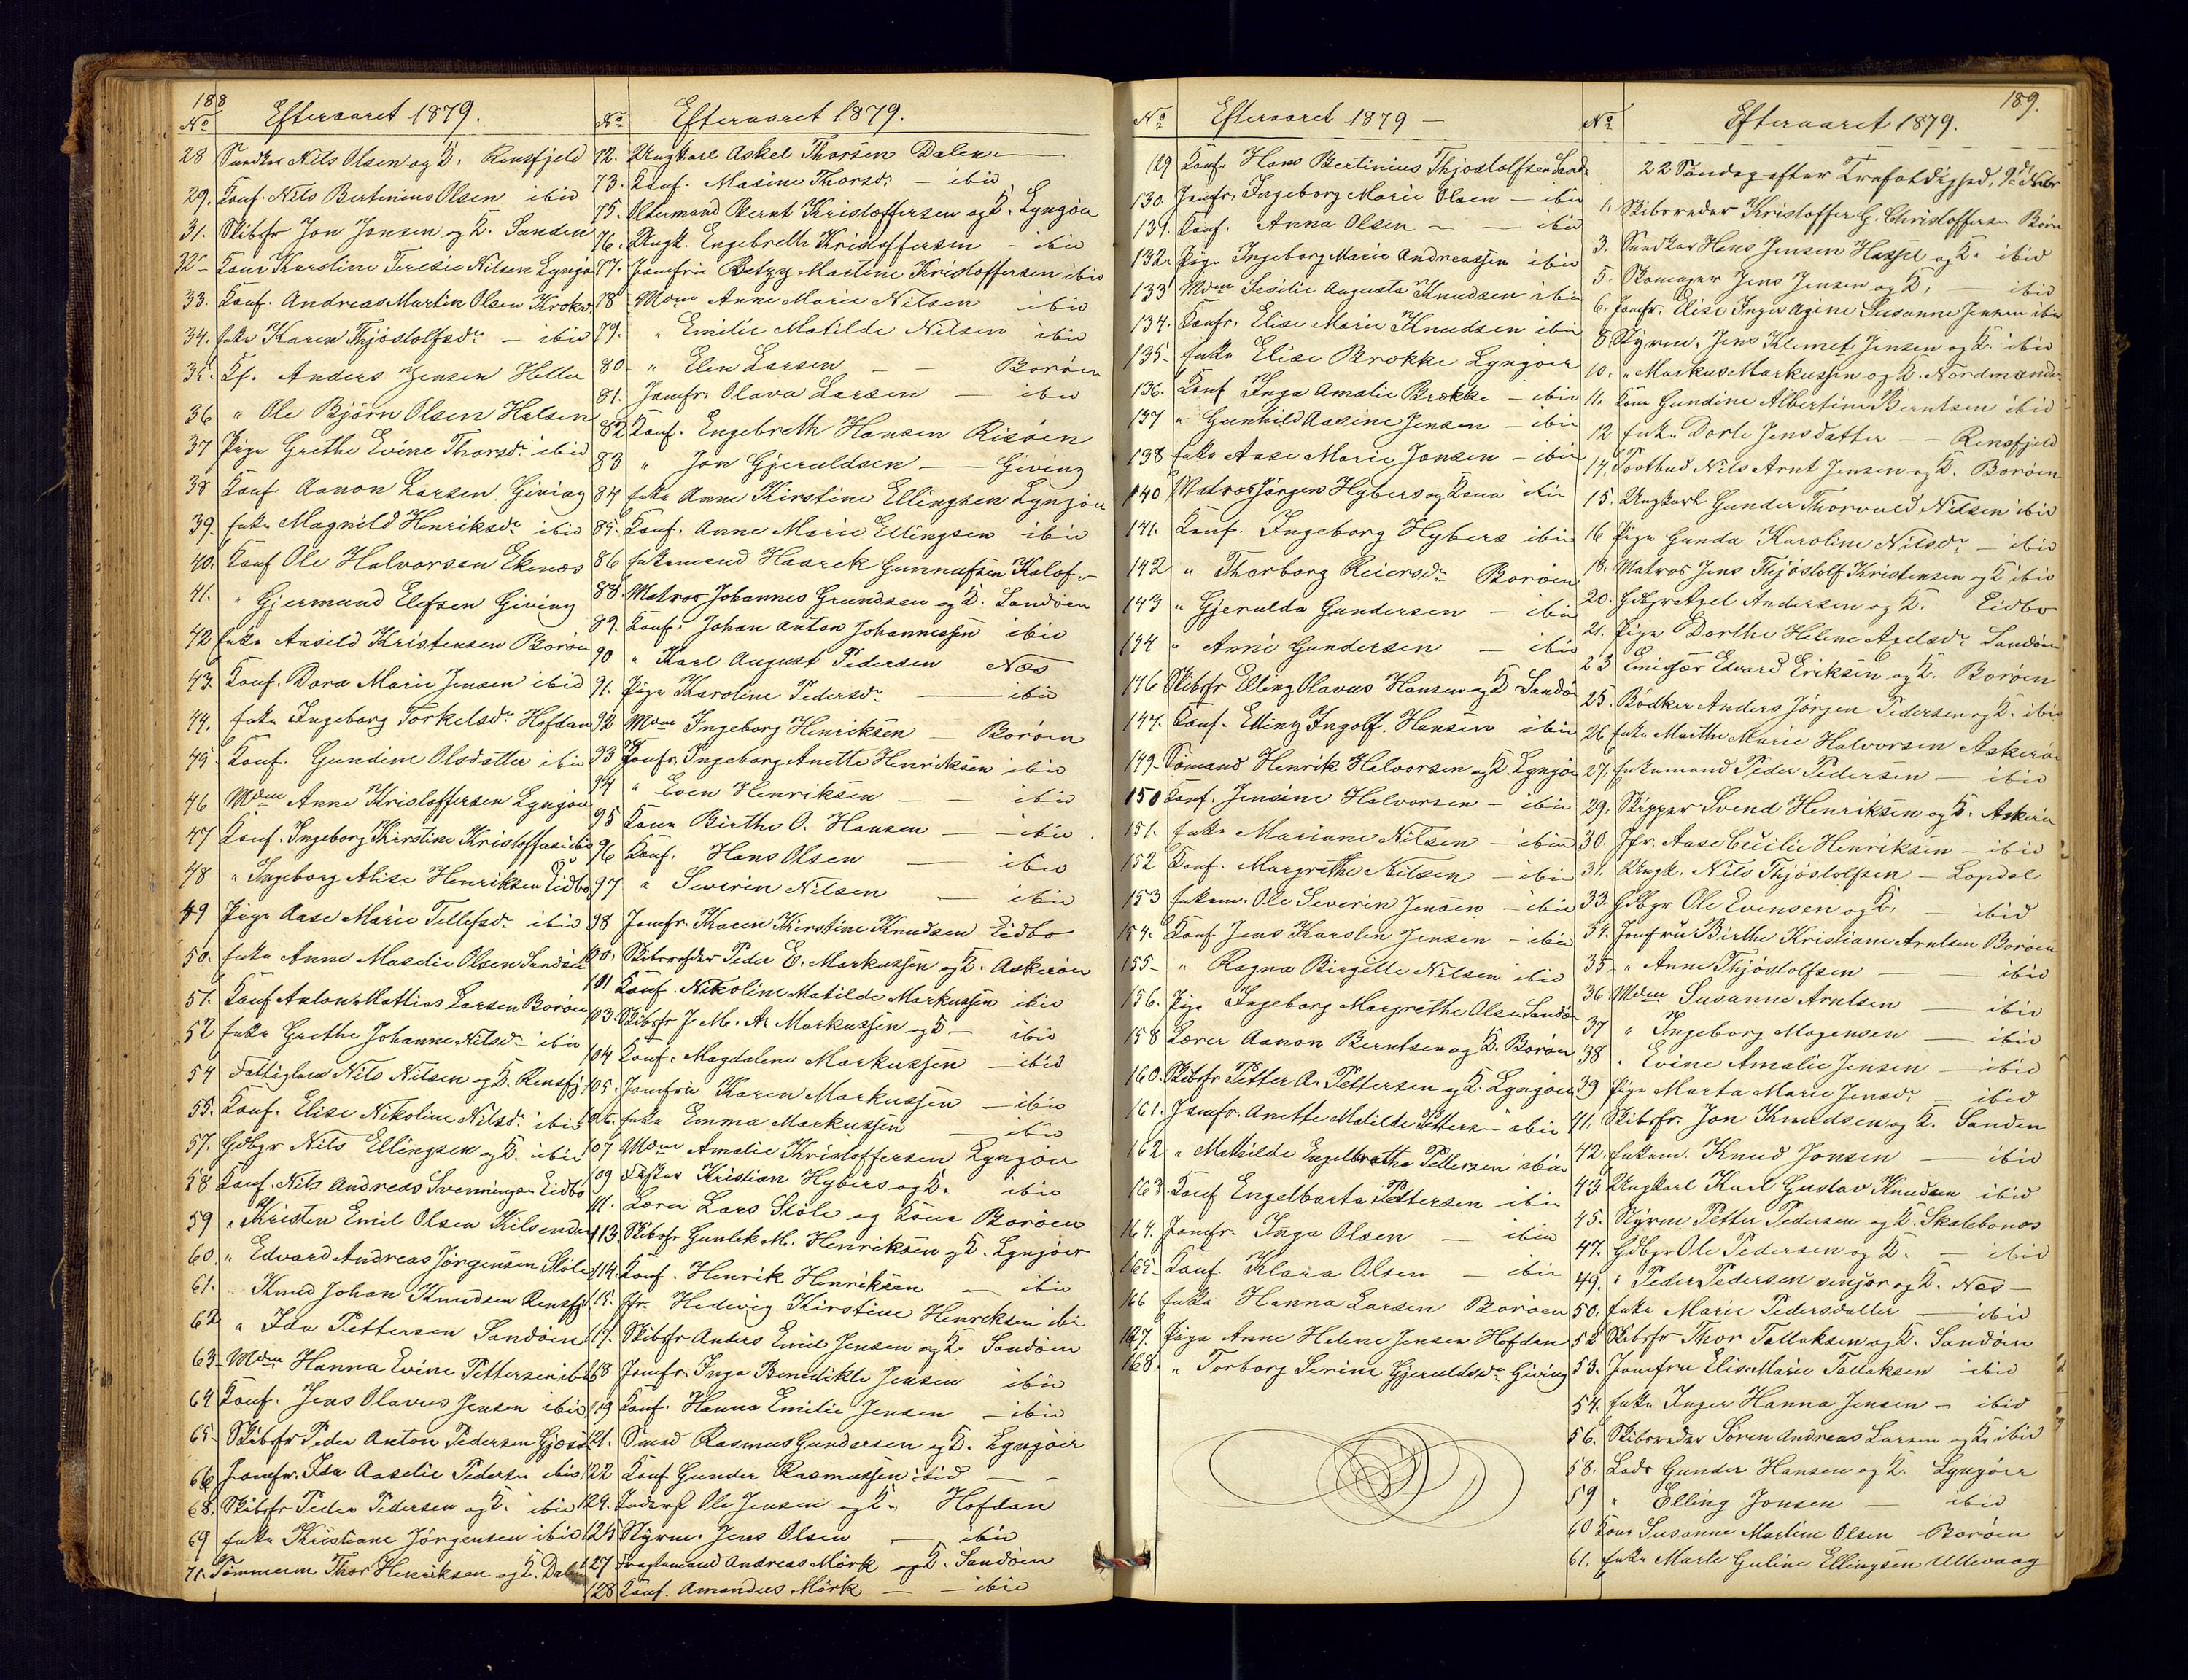 188
No Efteraaret 1879.
28 Snedker Nils Olsen og K. Rensfjeld
29. Konf. Nils Bertinius Olsen ibid
31. Skibsfr Jon Jonsen og K. Sanden
32 Kone Karoline Teresie Nilsen Lyngø
33. Konf. Andreas Martin Olsen Kroks.
34. Enke Karen Thjøstolfsdr — ibid
35. Kf. Anders Jensen Heller
36 " Ole Bjørn Olsen Halsen
37 Pige Grethe Evine Thorsdr ibid
38 Konf Aanon Larsen Giving
39. Enke Magnild Henriksdr ibid
40. Konf Ole Halvorsen Ekenæs
41. " Gjermund Elefsen Giving
42 Enke Aasild Kristensen Borøen
43. Konf. Dora Marie Jensen ibid
44. Enke Ingeborg Torkelsdr Hofdan
45. Konf. Gundine Olsdatter ibid
46 Mdm Anne Kristoffersen Lyngør
47 Konf. Ingeborg Kirstine Kristoffersen ibid
48 " Ingeborg Alise Henriksen Eidbo
49 Pige Aase Marie Tellefsdr ibid
50. Enke Anne Maselie Olsen Sandøen
51. Konf Anton Mattias Larsen Borøen
52 Enke Grethe Johanne Nilsdr ibid
54 Fattiglem Nils Nilsen og K. Rensfj
55. Konf. Elise Nikoline Nilsdr ibid
57. Gdbgr Nils Ellingsen og K. ibid
58 Konf. Nils Andreas Svenningsen Eidbo
59 " Kristen Emil Olsen Kilsenden
60. " Edvard Andreas Jørgensen Støle
61. " Knud Johan Knudsen Rensfj
62 " Ida Pettersen Sandøen
63 Mdm Hanna Evine Pettersen ibid
64 Konf. Jens Olavus Jensen ibid
65 Skibsfr Peder Anton Pedersen Gjæsø
66 Jomfr. Ida Aaselie Pedersen ibid
68. Skibsfr Peder Pedersen og K. ibid
69 Enke Kristiane Jørgensen ibid
71. Tømmerm Thor Henriksen og K. Dalen
No Efteraaret 1879.
72. Ungkarl Askel Thorsen Dalen
73. Konf. Masine Thorsdr — ibid
75. Oldermand Bernt Kristoffersen og K. Lyngøer
76. Ungk. Engebreth Kristoffersen — ibid
77. Jomfru Betzy Martine Kristoffersen ibid
78 Mdm Anne Marie Nilsen ibid
79. " Emilie Matilde Nilsen ibid
80 " Elen Larsen — — Borøen
81. Jomfr. Olava Larsen — ibid
82 Konf. Engebreth Hansen Risøen
83 " Jon Gjeruldsen — — Giving
84 Enke Anne Kirstine Ellingsen Lyngøer
85. Konf. Anne Marie Ellingsen ibid
86 Enkemand Haarek Gunnufsen Kalof
88. Matros Johannes Grundsen og K. Sandøen
89. Konf. Johan Anton Johannessen ibid
90 " Karl August Pedersen Næs
91. Pige Karoline Pedersdr — ibid
92 Mdm Ingeborg Henriksen — Borøen
93 Jomfr. Ingeborg Anette Henriksen ibid
94 " Even Henriksen — — ibid
95 Kone Birthe O. Hansen — — ibid
96 Konf. Hans Olsen — ibid
97 " Severin Nilsen — ibid
98 Jomfr. Karen Kirstine Knudsen Eidbo
100. Skibsreder Peder E. Markussen og K. Askerøen
101 Konf. Nikoline Matilde Markussen ibid
103. Skibsfr J. M. A. Markussen og K — ibid
104 Konf. Magdalene Markussen — ibid
105. Jomfru Karen Markussen — ibid
106. Enke Emma Markussen ibid
107 Mdm Amalie Kristoffersen Lyngøer
109 Kristian Hybers og K. ibid
111. Lærer Lars Støle og Kone Borøen
113 Skibsfr Gunlek M. Henriksen og K. Lyngøer
114. Konf. Henrik Henriksen — ibid
115. Jfr. Hedvig Kirstine Henriksen ibi
117. Skibsfr Anders Emil Jensen og K. Sandøen
118 Jomfr. Inga Benedikte Jensen ibid
119 Konf. Hanna Emilie Jensen — ibid
121. Smed Rasmus Gundersen og K. Lyngøer
122 Konf Gunder Rasmussen ibid — —
124. Inderst Ole Jensen og K. Hofdan
125 Styrm. Jens Olsen — ibid
127 Fragtemand Andreas Mørk og K. Sandøen
128 Konf. Amandus Mørk — — ibid
No Efteraaret 1879 —
129 Konf. Hans Bertinius Thjøstolfsen Sand.
130. Jomfr. Ingeborg Marie Olsen — ibid
131. Konf. Anna Olsen — — ibid
132. Pige Ingeborg Marie Andreassen ibid
133 Mdm Sesilie Augusta Knudsen ibid
134. Konfr. Elise Marie Knudsen ibid
135. Enke Elise Brokke Lyngøer
136. Konf Inga Amalie Brokke — ibid
137 " Gunhild Aasine Jensen — ibid
138 Enke Aase Marie Jonsen — ibid
140 Matros Jørgen Hybers og Kone ibid
141. Konf. Ingeborg Hybers ibid
142 " Thorborg Reiersdr Borøen
143 " Gjerulda Gundersen — ibid
144 " Anne Gundersen — ibid
146 Skibsfr Elling Olavus Hansen og K Sandø
147. Konf. Elling Ingolf Hansen ibid
149. Sømand Henrik Halvorsen og K. Lyngøer
150 Konf. Jensine Halvorsen — ibid
151. Enke Mariane Nilsen — ibid
152 Konf. Margrethe Nilsen — ibid
153 Enkem. Ole Severin Jensen — ibid
154. Konf Jens Karsten Jensen — ibid
155 " Ragna Birgette Nilsen ibid
156. Pige Ingeborg Margrethe Olsen Sandø
158 Lærer Aanon Berntsen og K. Borøen
160. Skibsfr Petter A. Pettersen og K. Lyngøer
161. Jomfr. Anette Matilde Pettersen ibid
162 " Mathilde Engelbretha Pettersen ibid
163. Konf Engelbarta Pettersen ibid
164. Jomfr. Inga Olsen — ibid
165 Konf Klara Olsen — ibid
166 Enke Hanna Larsen Borøen
167. Pige Anne Helene Jensen Hofdan
168. " Torborg Serine Gjeruldsdr Giving
189.
No Efteraaret 1879.
22 Søndag efter Trefoldighed, 9de Nvbr
1. Skibsreder Kristoffer G. Christoffersen Borø
3. Snedker Hans Jensen Hassel og K. ibid
5. Skomager Jens Jensen og K. ibid
6. Jomfr. Elise Inger Agine Susanne Jensen ibid
8 Styrm. Jens Klemet Jensen og K. ibid
10. " Markus Markussen og K. Nordmand
11. Kone Gundine Albertine Berntsen ibid
12 Enke Dorte Jensdatter — — Rensfjeld
14. Postbud Nils Arnt Jensen og K. Borøen
15. Ungkarl Gunder Thorvald Nilsen ibid
16 Pige Gunda Karoline Nilsdr — ibid
18. Matros Jens Thjøstolf Kristensen og K ibid
20. Gdbgr Axel Andersen og K. Eidbo
21. Pige Dorthe Helene Axelsdr Sandøen
23 Edvard Eriksen og K. Borøen
25. Bødker Anders Jørgen Pedersen og K. ibid
26 Enke Marthe Marie Halvorsen Askerøen
27. Enkemand Peder Pedersen — ibid
29. Skipper Svend Henriksen og K. Askerø
30. Jfr. Aase Cecilie Henriksen — ibid
31. Ungk. Nils Thjøstolfsen — Lopdal
33. Gdbgr Ole Evensen og K. — ibid
34. Jomfru Birthe Kristiane Arntsen Borøen
35 " Anne Thjøstolfsen — ibid
36 Mdm Susanne Arntsen — ibid
37 " Ingeborg Mogensen — ibid
38 " Evine Amalie Jensen — ibid
39 Pige Marta Marie Jensdr — ibid
41. Skibsfr. Jon Knudsen og K. Sanden
42. Enkem. Knud Jonsen — ibid
43 Ungkarl Karl Gustav Knudsen ibid
45. Styrm Petter Pedersen og K. Skalebonæs
47. Gdbgr Ole Pedersen og K. — ibid
49. " Peder Pedersen senjor og K. Næs —
50. Enke Marie Pedersdatter — ibid
52 Skibsfr Thor Tallaksen og K. Sandøen
53. Jomfru Elise Marie Tallaksen ibid
54. Enke Inger Hanna Jensen — ibid
56. Skibsreder Søren Andreas Larsen og K. ibid
58. Lods Gunder Hansen og K. Lyngøer
59 " Elling Jonsen — ibid
60 Kone Susanne Martine Olsen Borøen
61. Enke Marte Guline Ellingsen Ullevaag